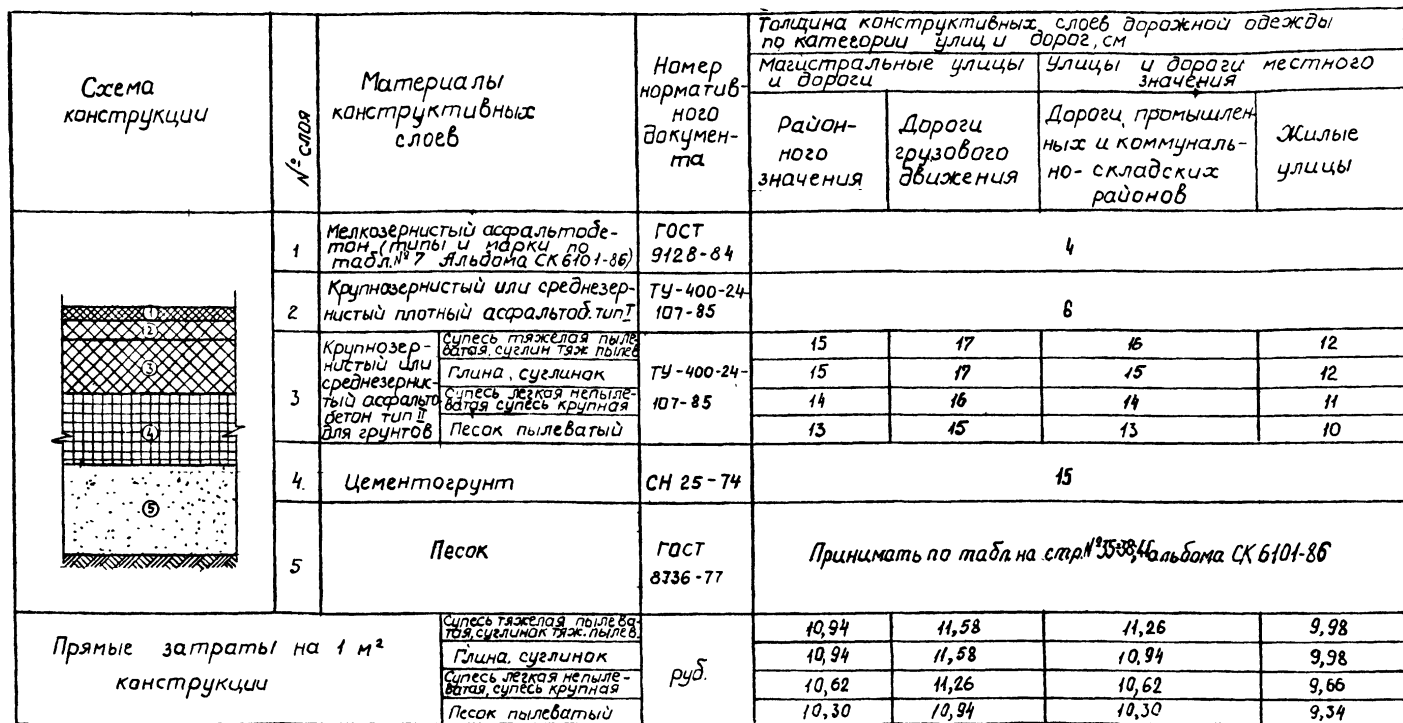 Схема
конструкции
№ слоя
Материалы
конструктивных
слоев
Номер
норматив-
ного
докумен-
та
Толщина конструктивных слоев дорожной одежды
по категории улиц и дорог, см
Магистральные улицы
и дороги
Улицы и дороги местного
значения
Район-
ного
значения
Дороги
грузового
движения
Дороги промышлен-
ных и коммуналь-
но-складских
районов
Жилые
улицы
1
Мелкозернистый асфальтобе-
тон (типы и марки по
табл. №7 Альбома СК 6101-86)
ГОСТ
9128-84
4
2
Крупнозернистый или среднезер-
нистый плотный асфальтоб. тип I
ТУ-400-24-
107-85
6
3
Крупнозер-
нистый или
среднезернис-
тый асфальто-
бетон тип II
для грунтов
Супесь тяжелая пыле-
ватая, суглин тяж пылев
ТУ-400-24-
107-85
15 17 16 12
Глина, суглинок
15 17 15 12
Супесь легкая непыле-
ватая супесь крупная
14 16 14 11
Песок пылеватый
13 15 13 10
4.
Цементогрунт
СН 25-74
15
5
Песок
ГОСТ
8736-77
Принимать по табл на стр. №35-38,46 альбома СК 6101-86
1
2
3
4
5
Прямые затраты на 1 м²
конструкции
руб.
Супесь тяжелая пылева-
тая, суглинок тяж. пылев.
10,94 11,58 11,26 9,98
Глина, суглинок
10,94 11,58 10,94 9,98
Супесь легкая непыле-
ватая, супесь крупная
10,62 11,26 10,62 9,66
Песок пылеватый
10,30 10,94 10,30 9,34